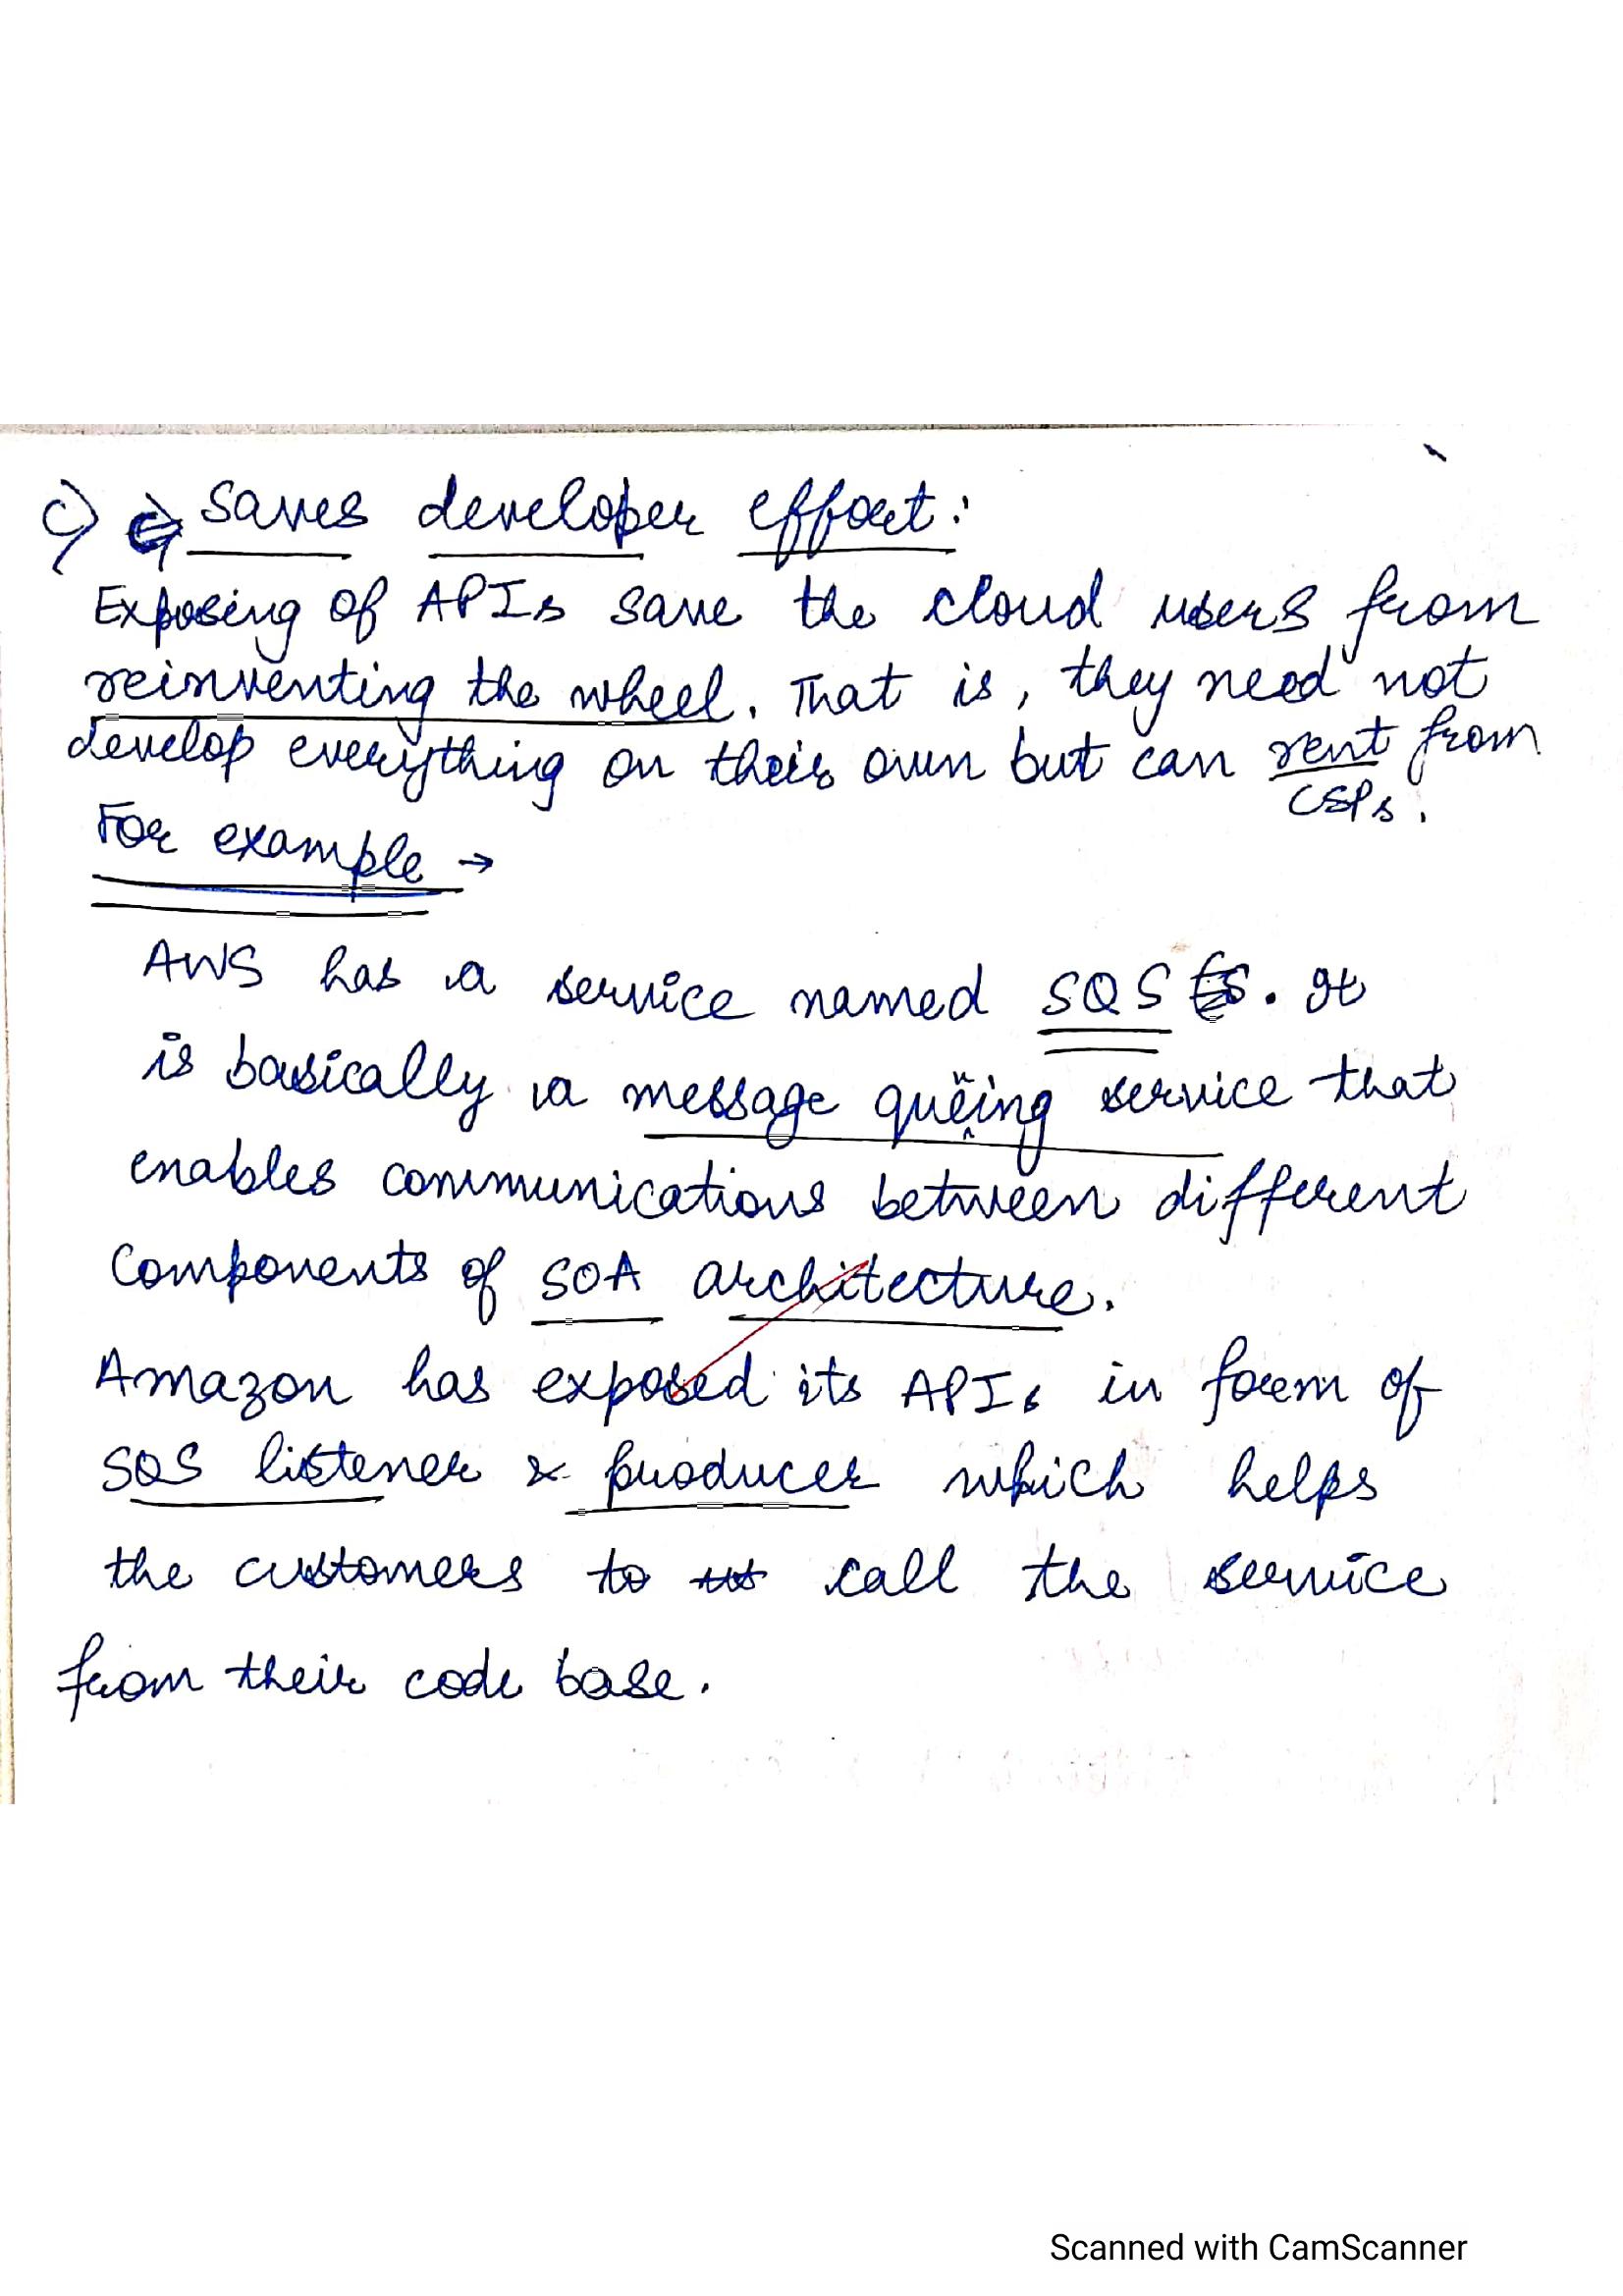 c) Saves developer effort:
Exposing of APIs save the cloud users from
reinventing the wheel. That is, they need not
develop everything on their own but can rent from
CSPs.
For example →
AWS has a service named SQS. It
is basically a message queing service that
enables communications between different
Components of SOA architecture.
Amazon has exposed its APIs in form of
SQS listener & producer which helps
the customers to call the service
from their code base.
Scanned with CamScanner